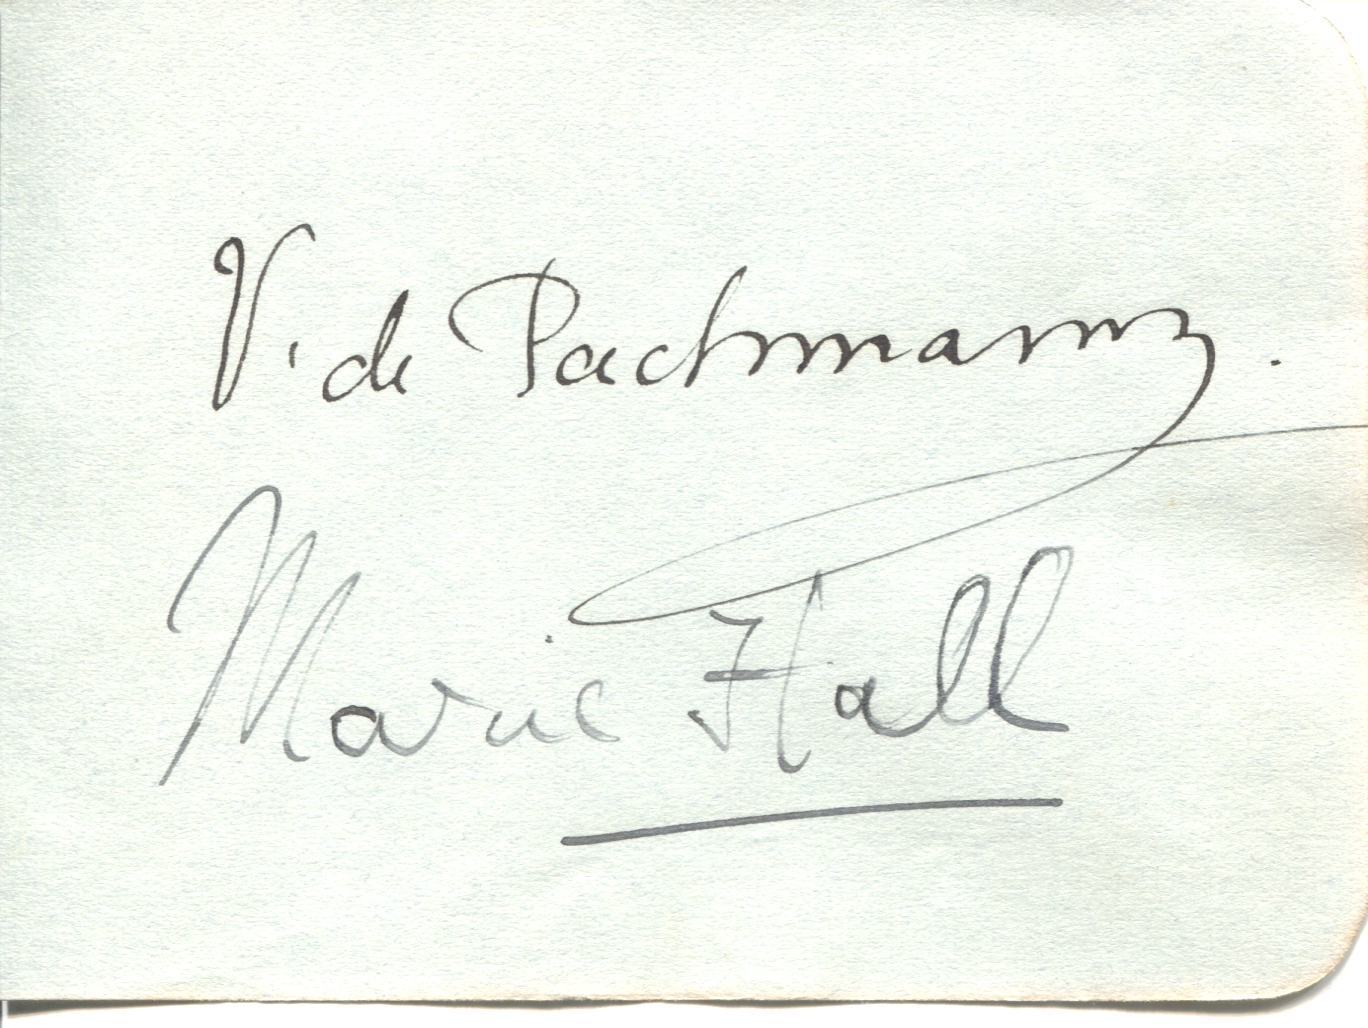 V. de Pachmann.
Marie Hall